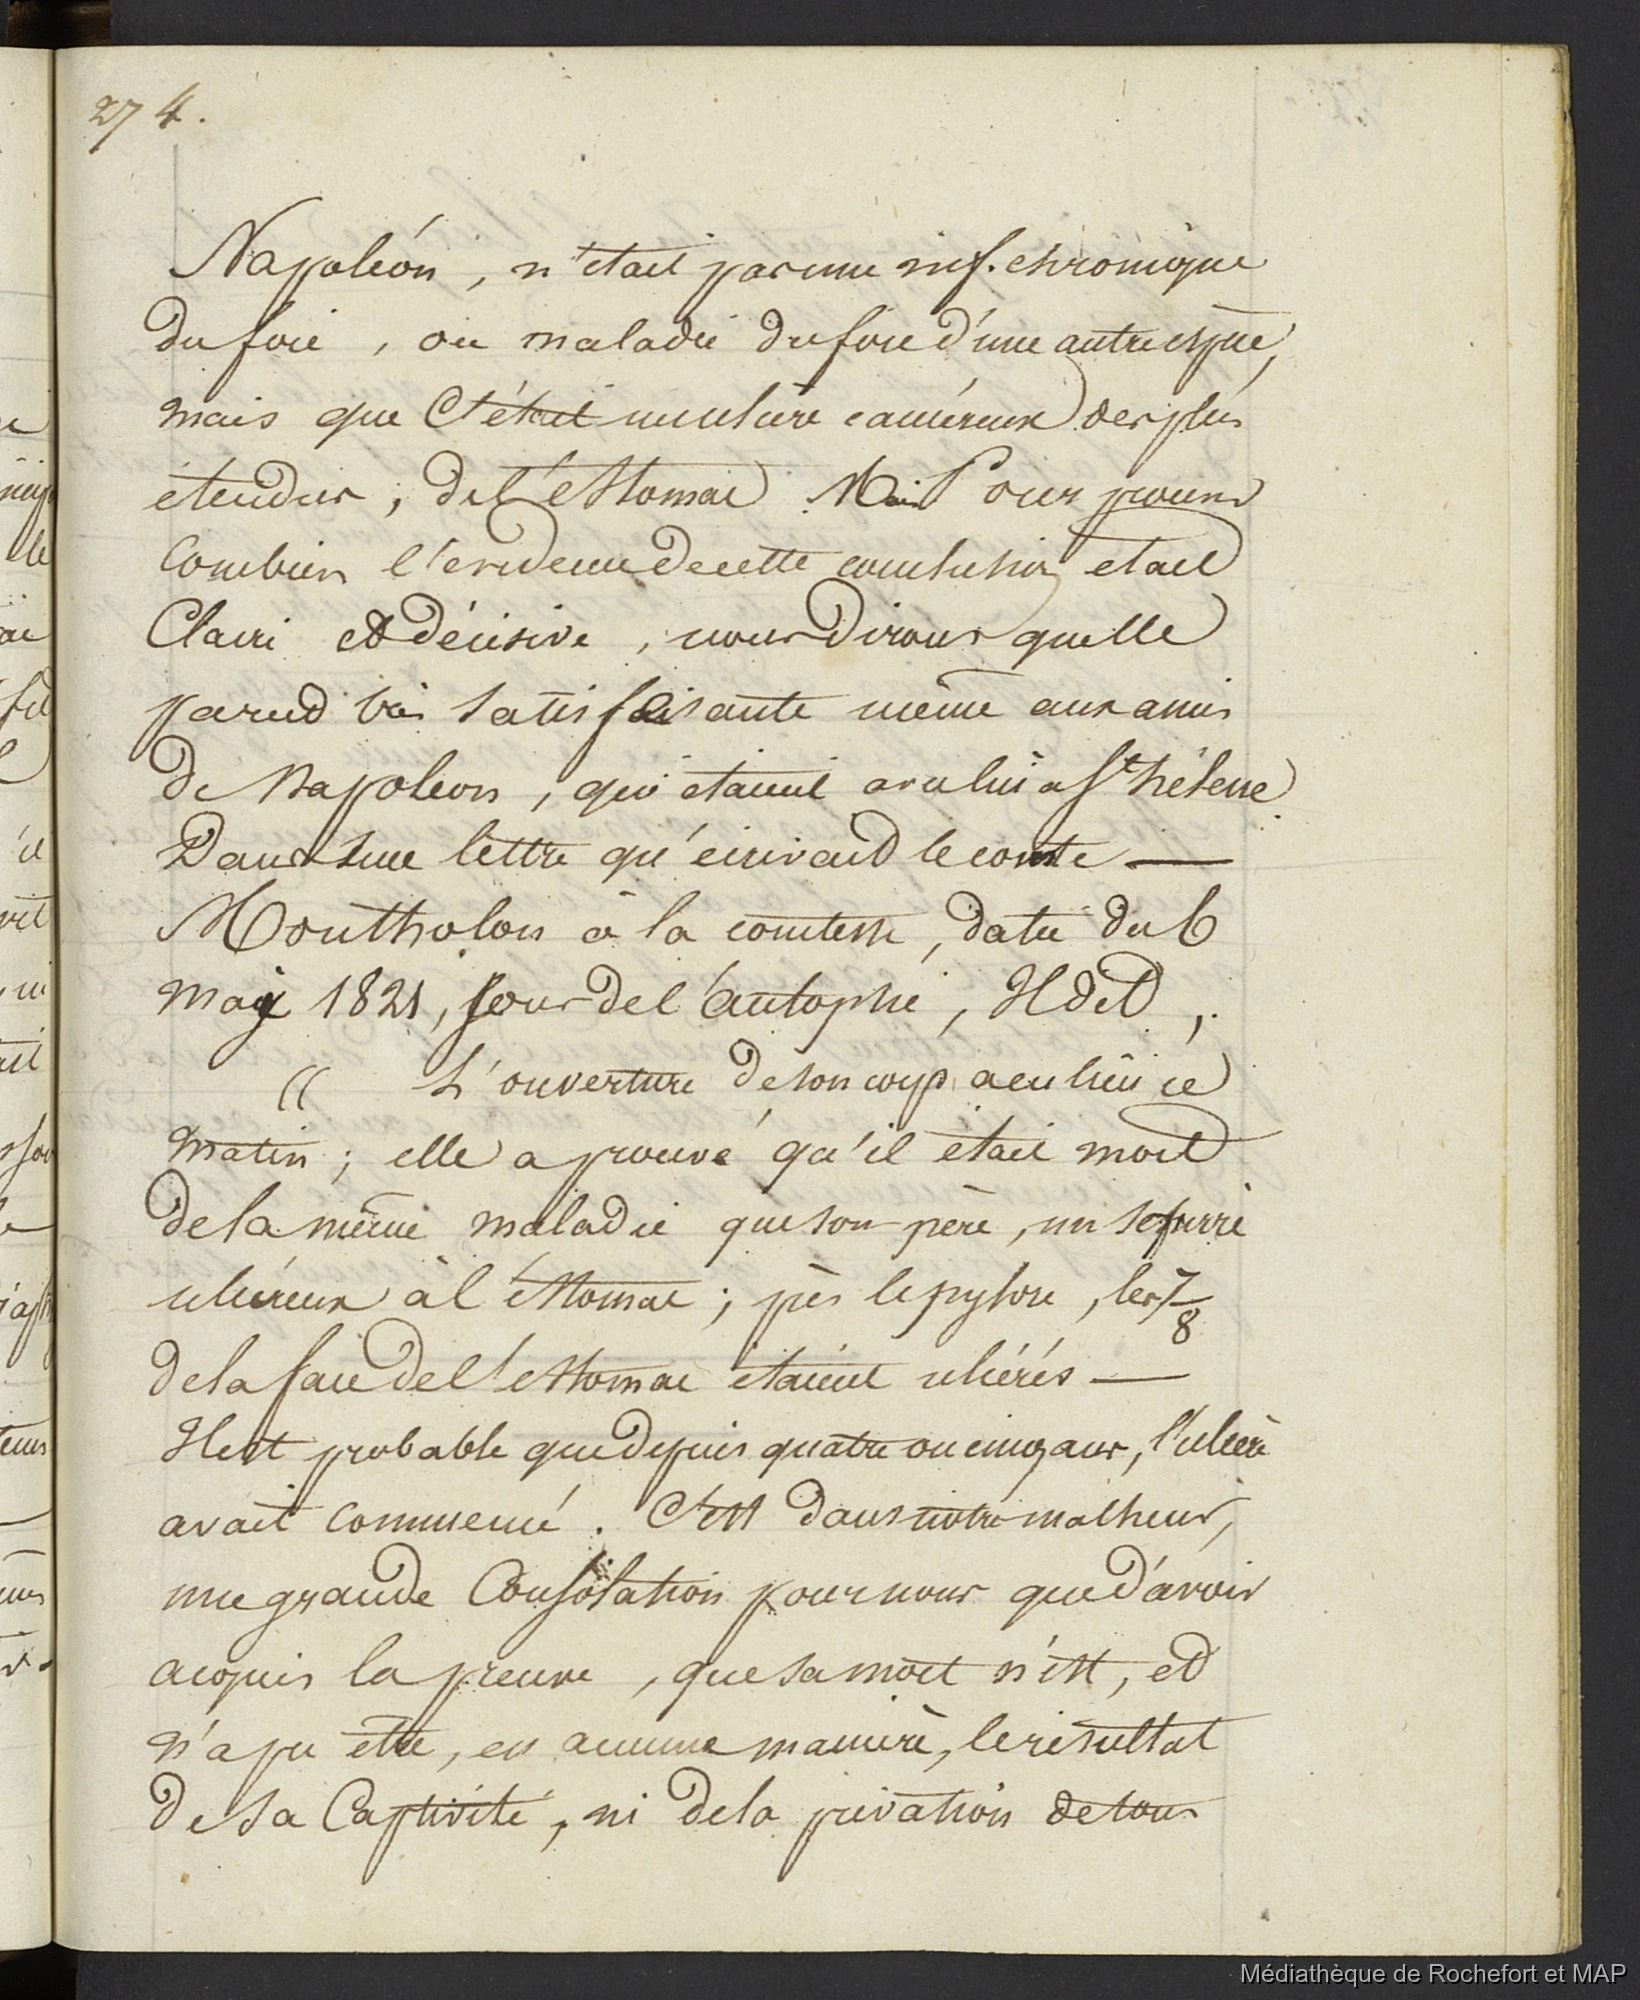 274.
Napoléon, n'était pas une inf. chronique
du foie, ou maladie du foie d'une autre espèce,
mais que C'était un ulcère cancéreux des plus
étendus, de l'estomac Mais Pour prouver
Combien l'evidence de cette conclusion etait
Claire et décisive, nous dirons quelle
parud très satisfaisante même aux amis
de Napoleon, qui etaient avec lui a Ste hélene
Dans une lettre qu'écrivaid le comte —
Montholon à la comtesse, datée du 6
may 1821, jour de l'autophie, Il dit,
« L'ouverture de son corps a eu lieu ce
matin; elle a prouvé qu'il était mort
de la même maladie que son père, un squirre
ulcéreux à l'estomac; près le pylore, les 7/8
de la face de l'estomac étaient ulcérés —
Il est probable que depuis quatre ou cinq ans, l'ulcère
avait commencé. C'est dans notre malheur,
une grande Consolation pour nous que d'avoir
acquis la preuve, que sa mort n'est, et
n'a pu etre, en aucune manière, le résultat
de sa Captivité, ni de la privation de tous
Médiathèque de Rochefort et MAP